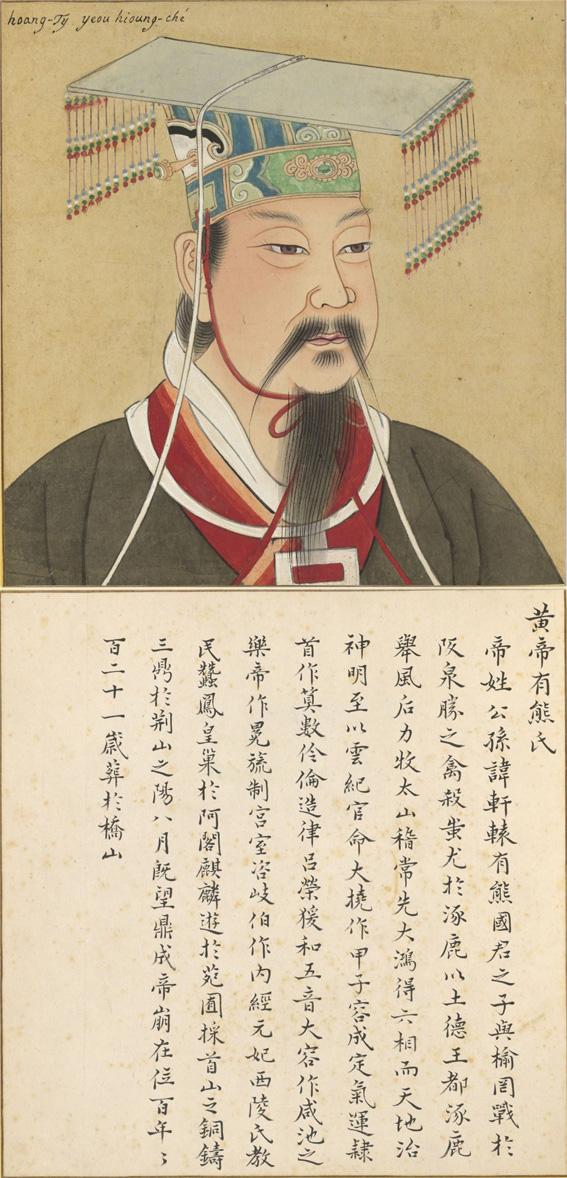 hoang-Ty yeou hioung-ché
黄帝有熊氏
帝姓公孫諱軒轅有熊國君之子與榆罔戰於
阪泉勝之禽殺蚩尤於涿鹿以土德王都涿鹿
舉風后力牧太山稽常先大鴻得六相而天地治
神明至以雲紀官命大撓作甲子容成定氣運隸
首作算數伶倫造律吕榮猨和五音大容作咸池之
樂帝作冕旒制宫室咨岐伯作内經元妃西陵氏教
民蠶鳳皇巢於阿閣麒麟遊於苑囿採首山之銅鑄
三鼎於荆山之陽八月既望鼎成帝崩在位百年〻
百二十一歲葬於橋山